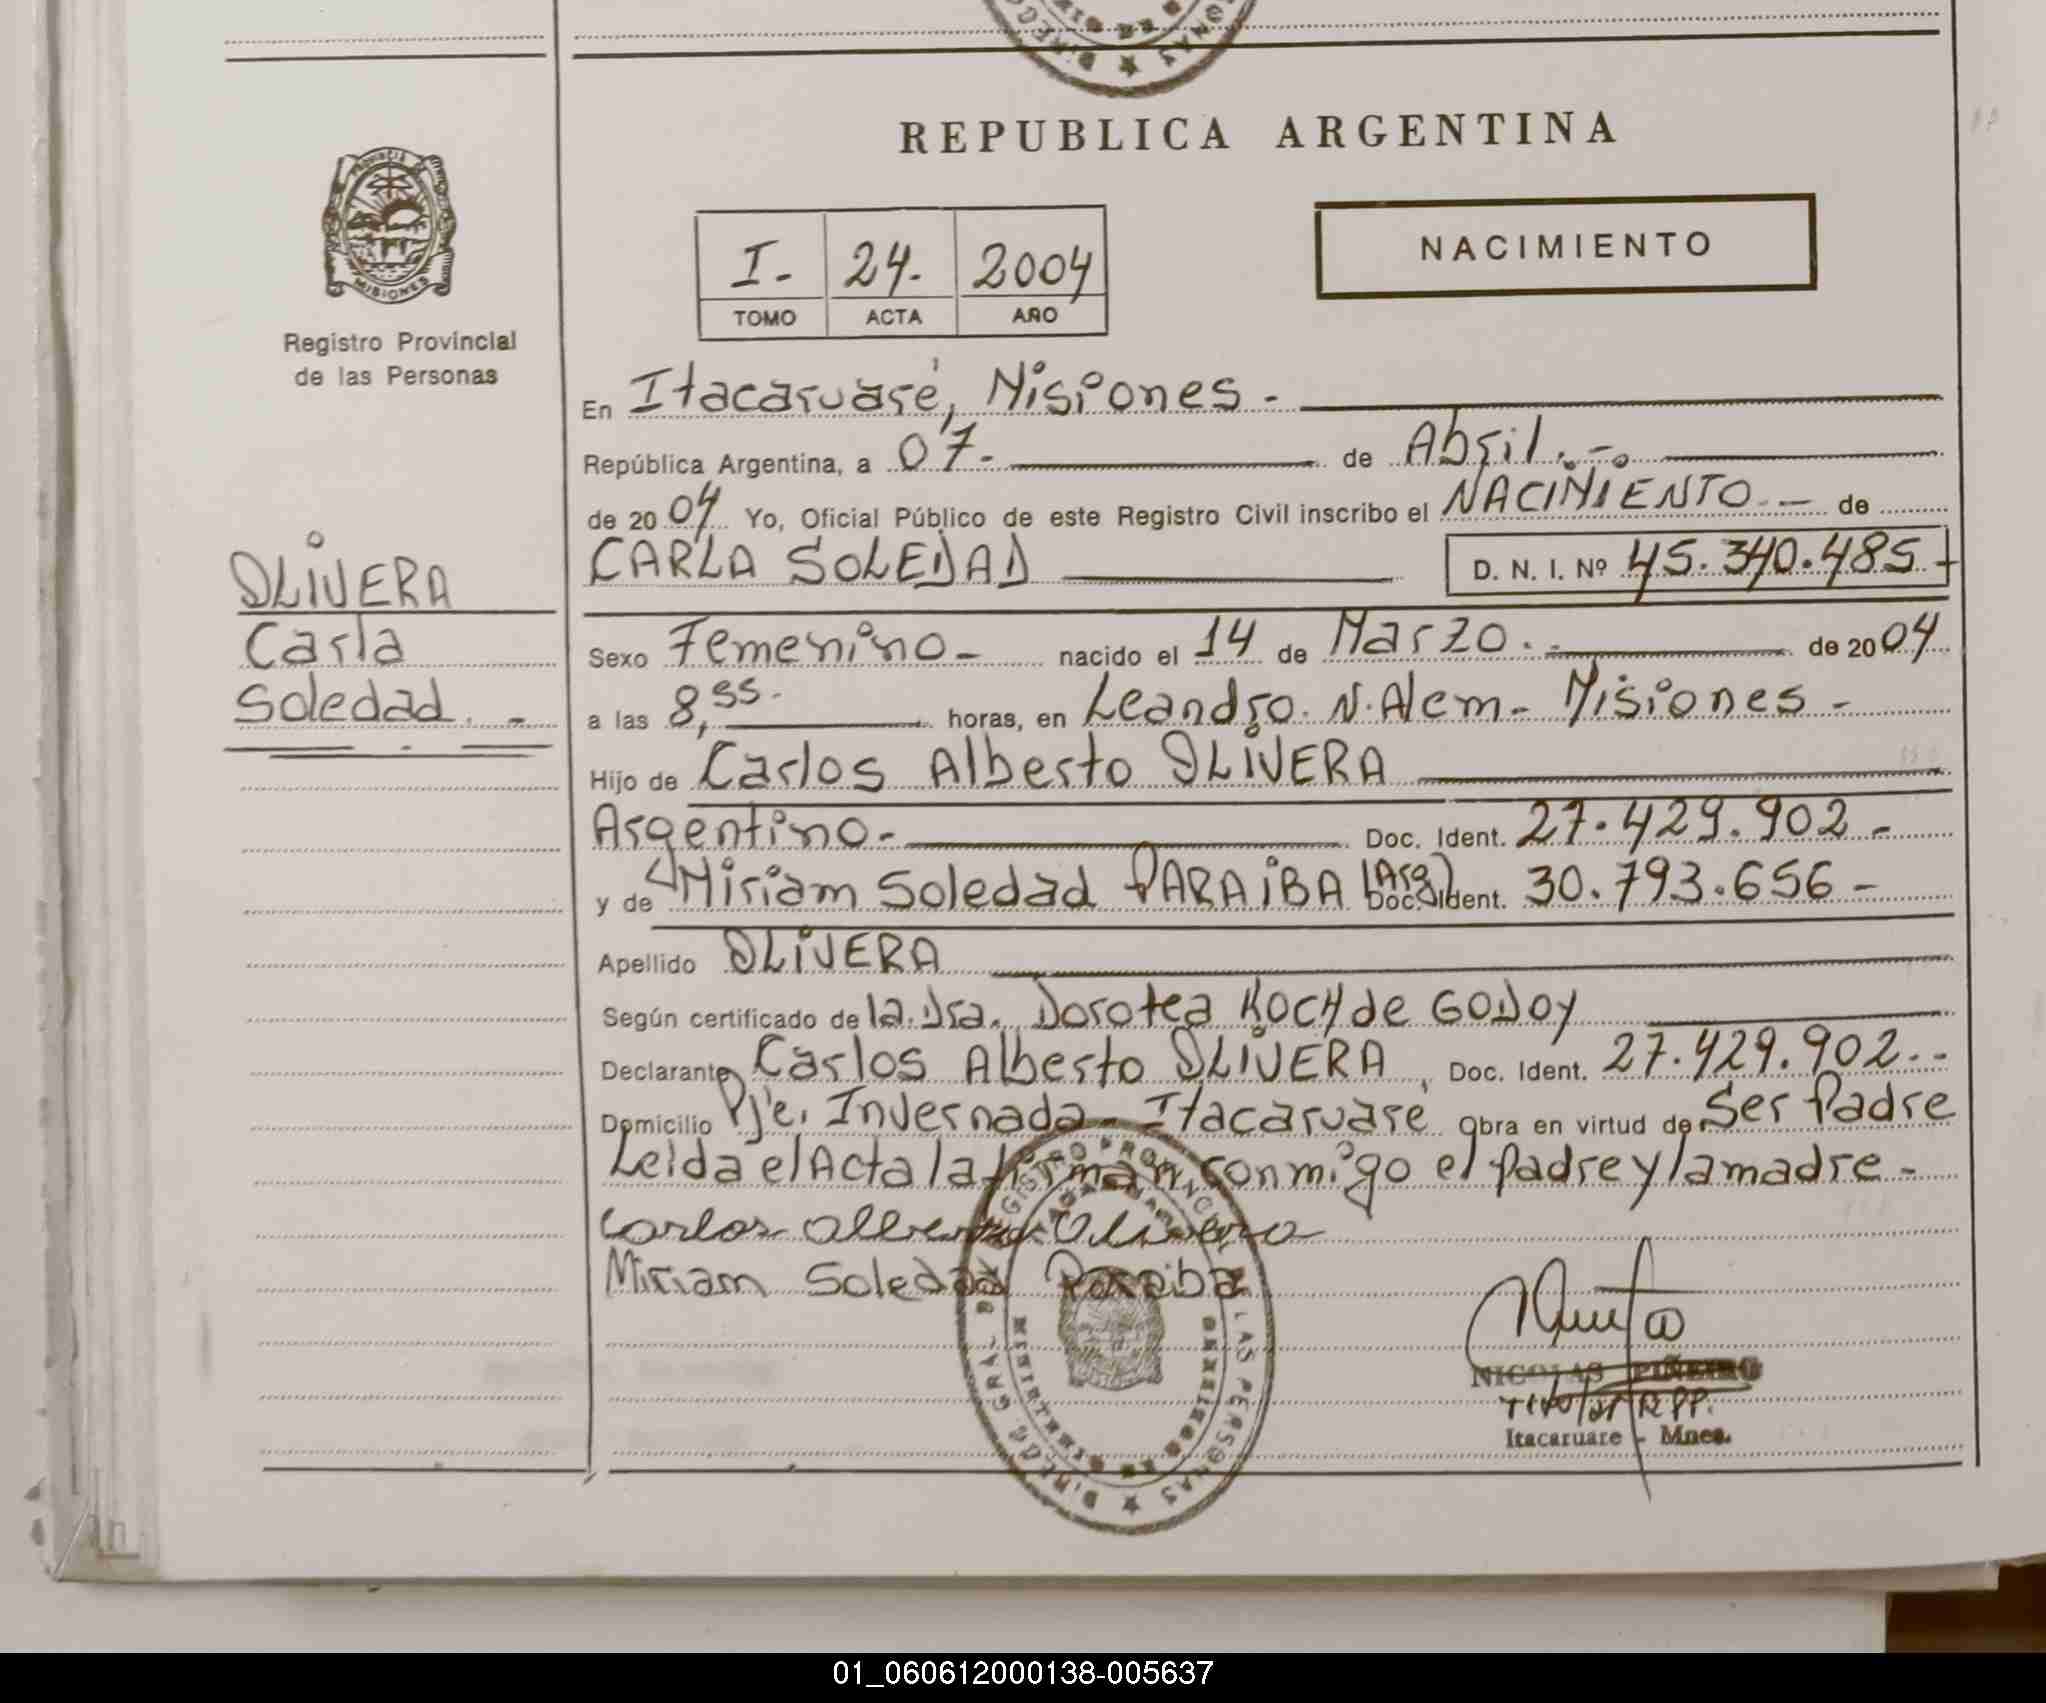 REPUBLICA ARGENTINA
NACIMIENTO
I- 24- 2004
TOMO ACTA AÑO
PROVINCIA DE MISIONES
Registro Provincial
de las Personas
OLIVERA
Carla
Soledad. -
En Itacaruaré, Misiones -
República Argentina, a 07- de Abril.-.
de 2004 Yo, Oficial Público de este Registro Civil inscribo el NACIMIENTO - de
CARLA SOLEDAD D. N. I. Nº 45.340.485-
Sexo Femenino- nacido el 14 de Marzo.- de 2004
a las 8,55- horas, en Leandro. N. Alem- Misiones -
Hijo de Carlos Alberto OLIVERA
Argentino- Doc. Ident. 27.429.902-
y de Miriam Soledad PARAIBA (Arg) Doc. Ident. 30.793.656-
Apellido OLIVERA
Según certificado de la. Dra. Dorotea KOCH de GODOY
Declarante Carlos Alberto OLIVERA, Doc. Ident. 27.429.902.-
Domicilio Pje. Invernada- Itacaruaré Obra en virtud de Ser Padre
Leida el Acta la firman conmigo el Padre y la madre-
Carlos Alberto Olivera
Miriam Soledad Paraiba
NICOLAS PIÑEIRO
Titular RPP.
Itacaruare - Mnes.
01_060612000138-005637